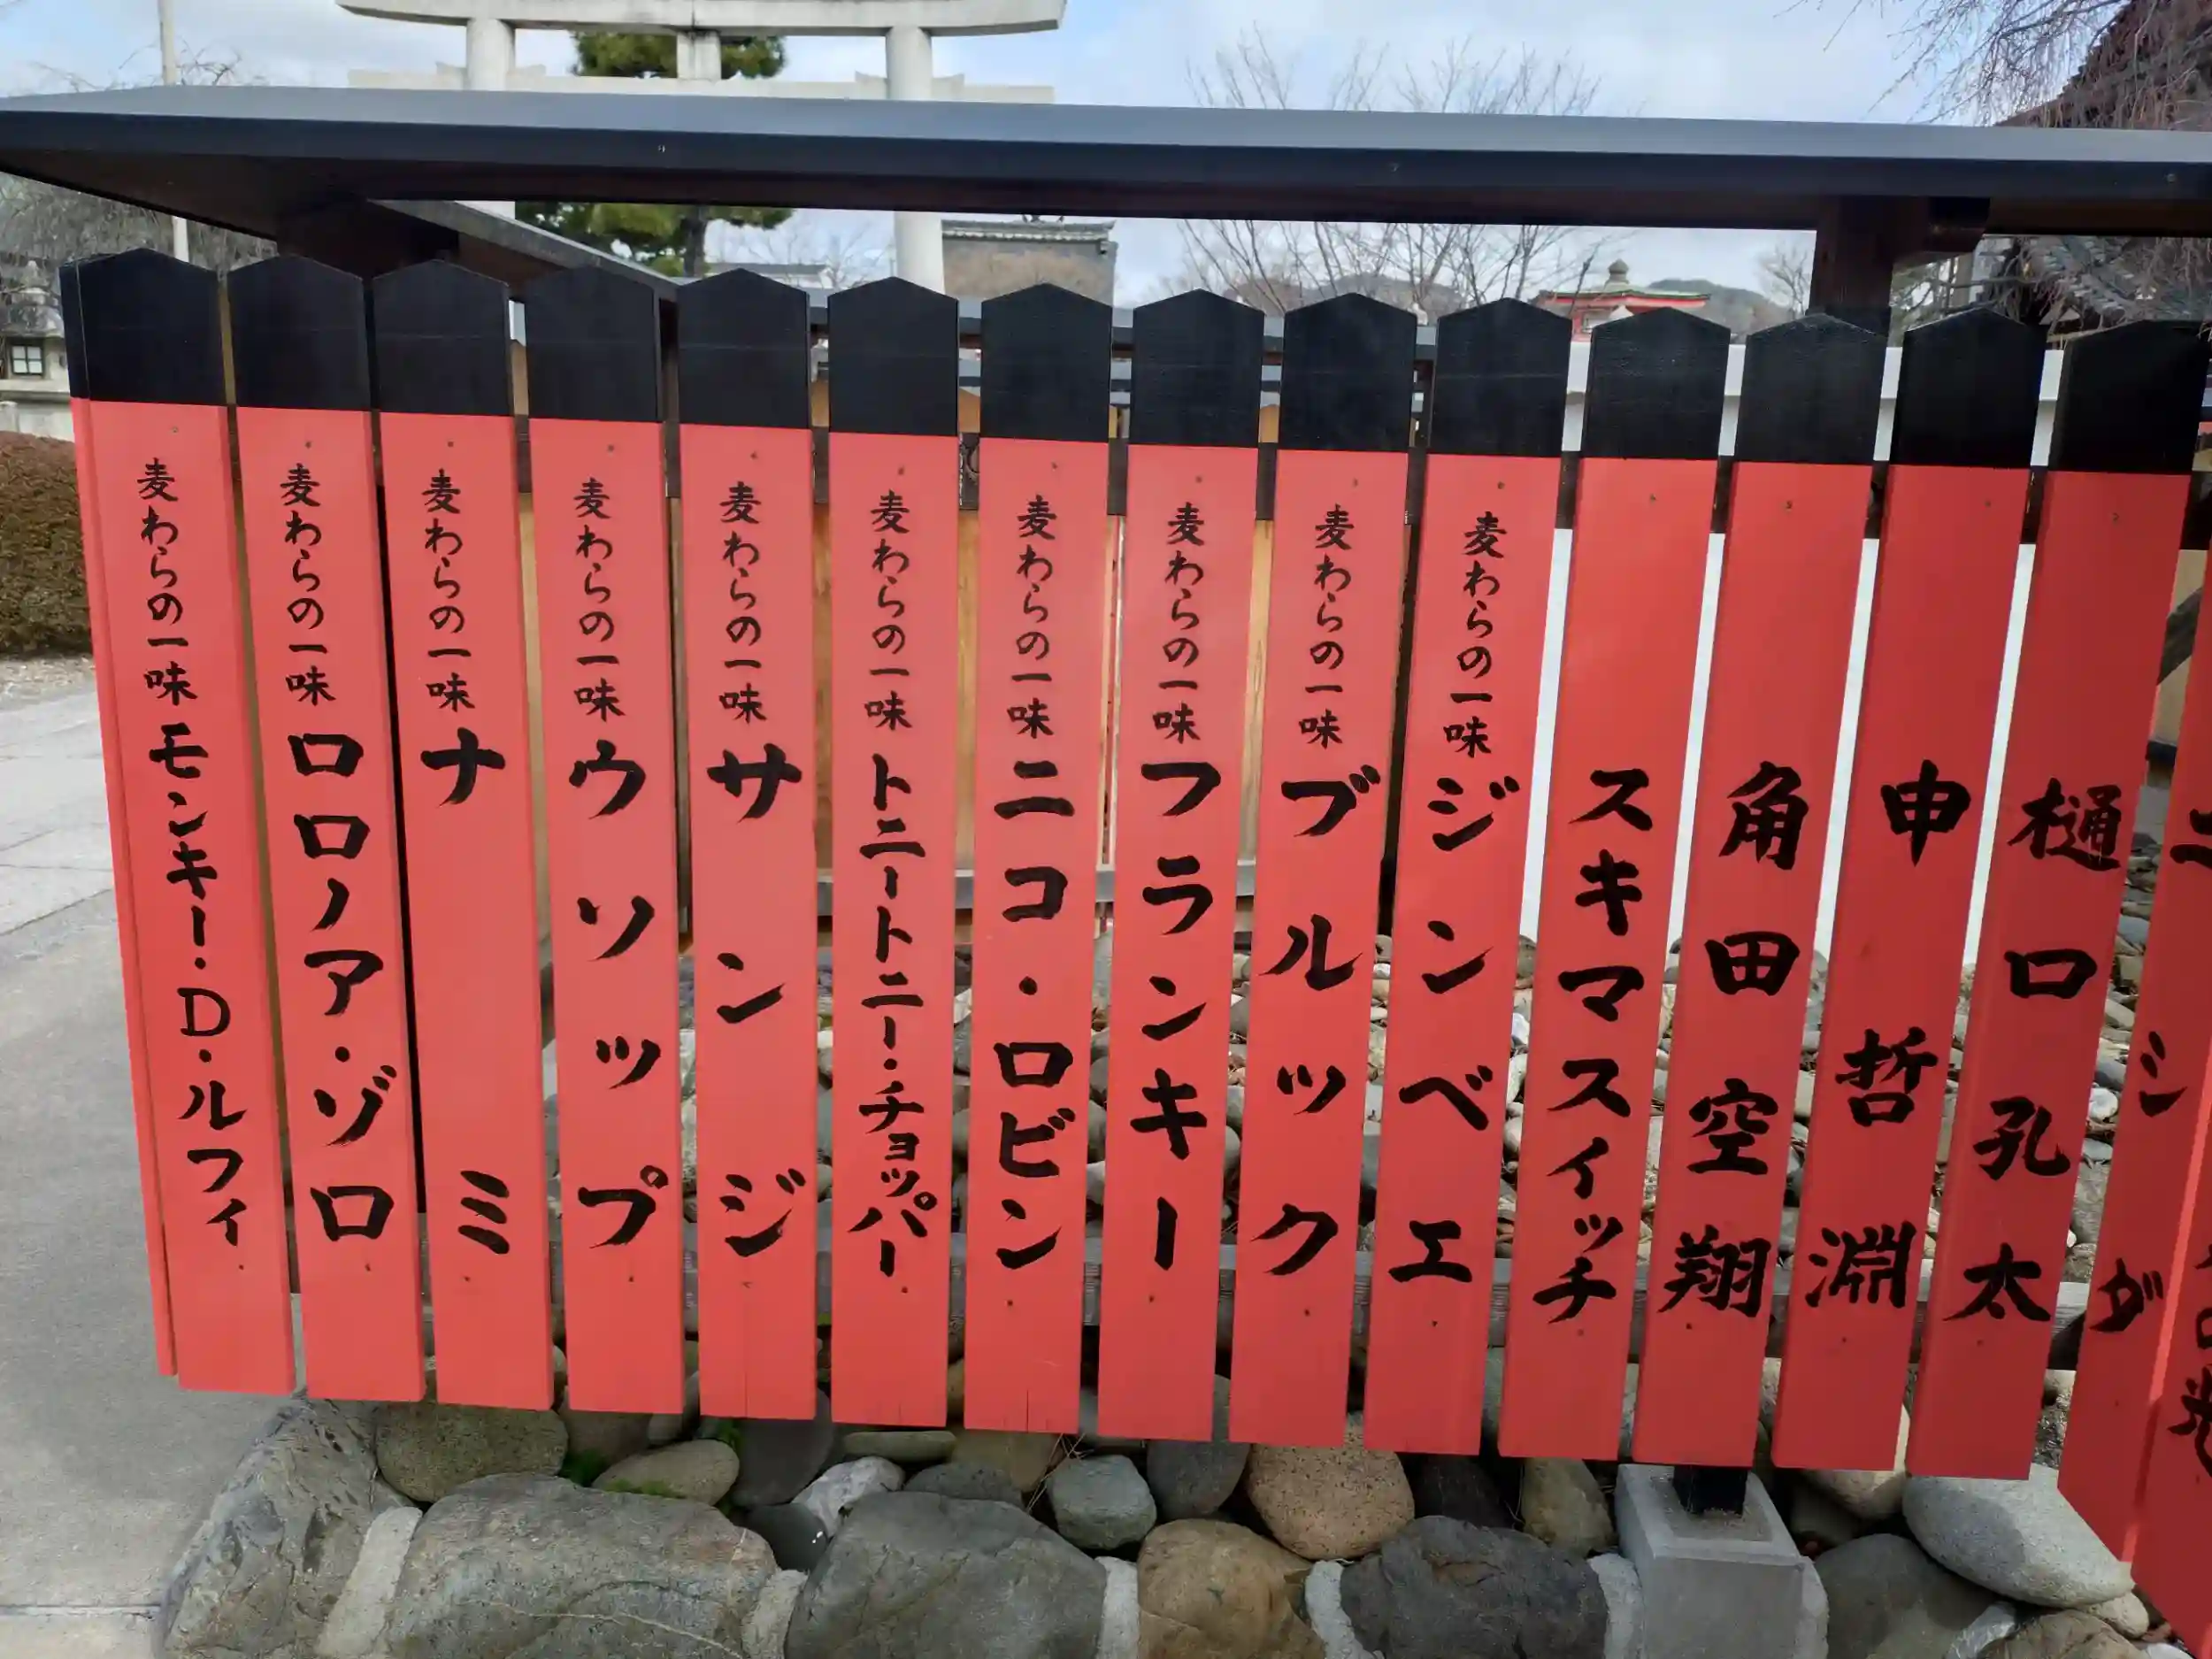 麦わらの一味 モンキー・D・ルフィ
麦わらの一味 ロロノア・ゾロ
麦わらの一味 ナミ
麦わらの一味 ウソップ
麦わらの一味 サンジ
麦わらの一味 トニートニー・チョッパー
麦わらの一味 ニコ・ロビン
麦わらの一味 フランキー
麦わらの一味 ブルック
麦わらの一味 ジンベエ
スキマスイッチ
角田空翔
申哲淵
樋口孔太